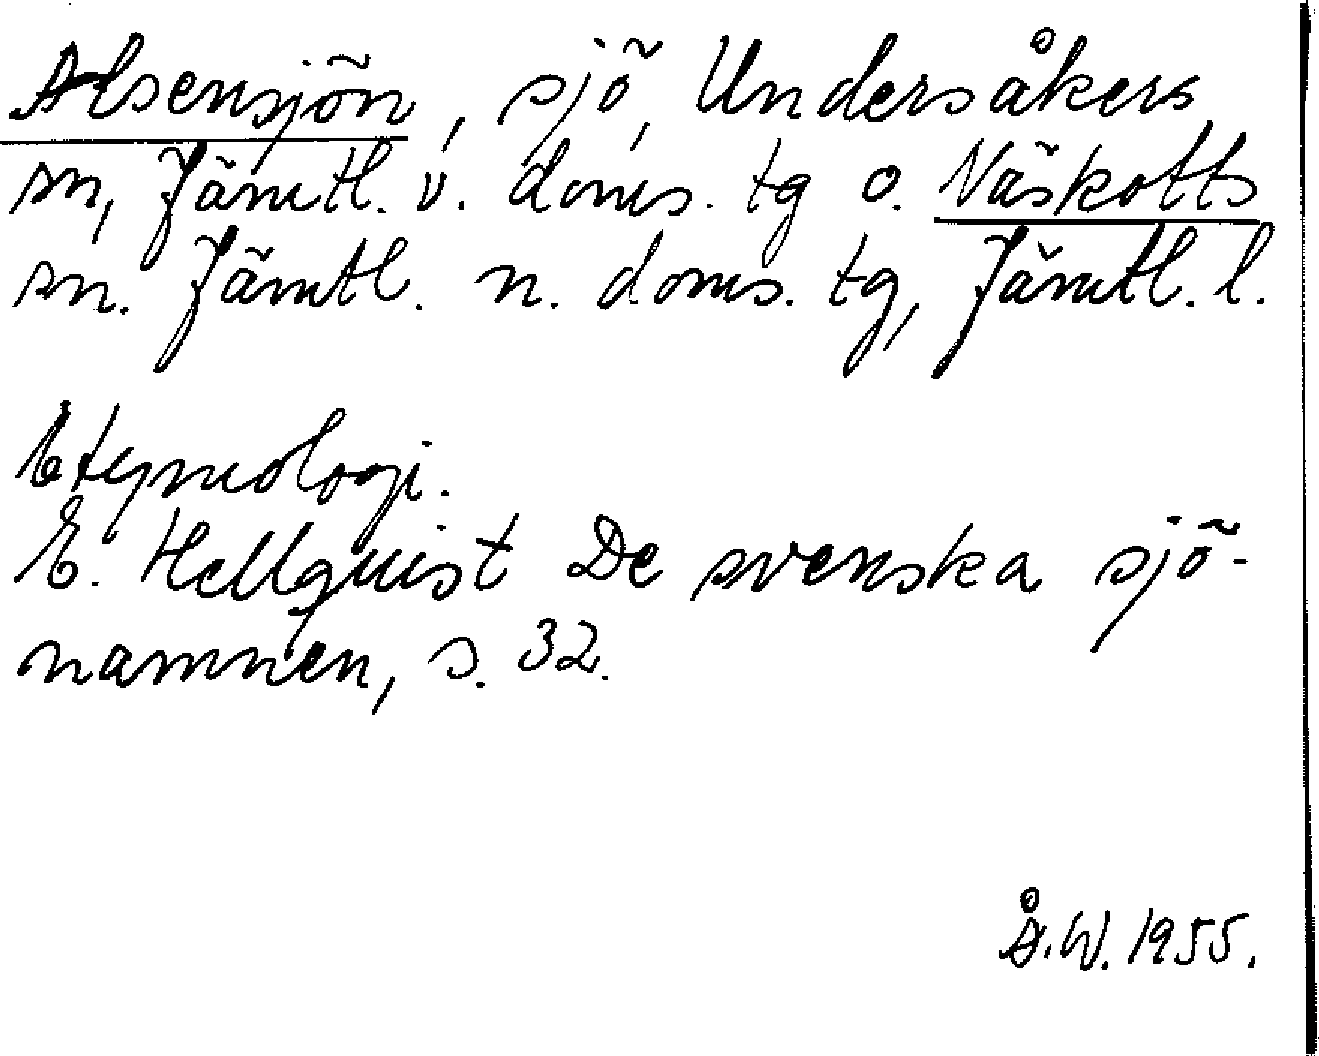 Alsensjön, sjö, Undersåkers
sn, Jämtl. v. doms. tg o. Näskotts
sn. Jämtl. n. doms. tg, Jämtl. l.
Etymologi.
E. Hellquist De svenska sjö-
namnen, s. 32.
Å.W. 1955.